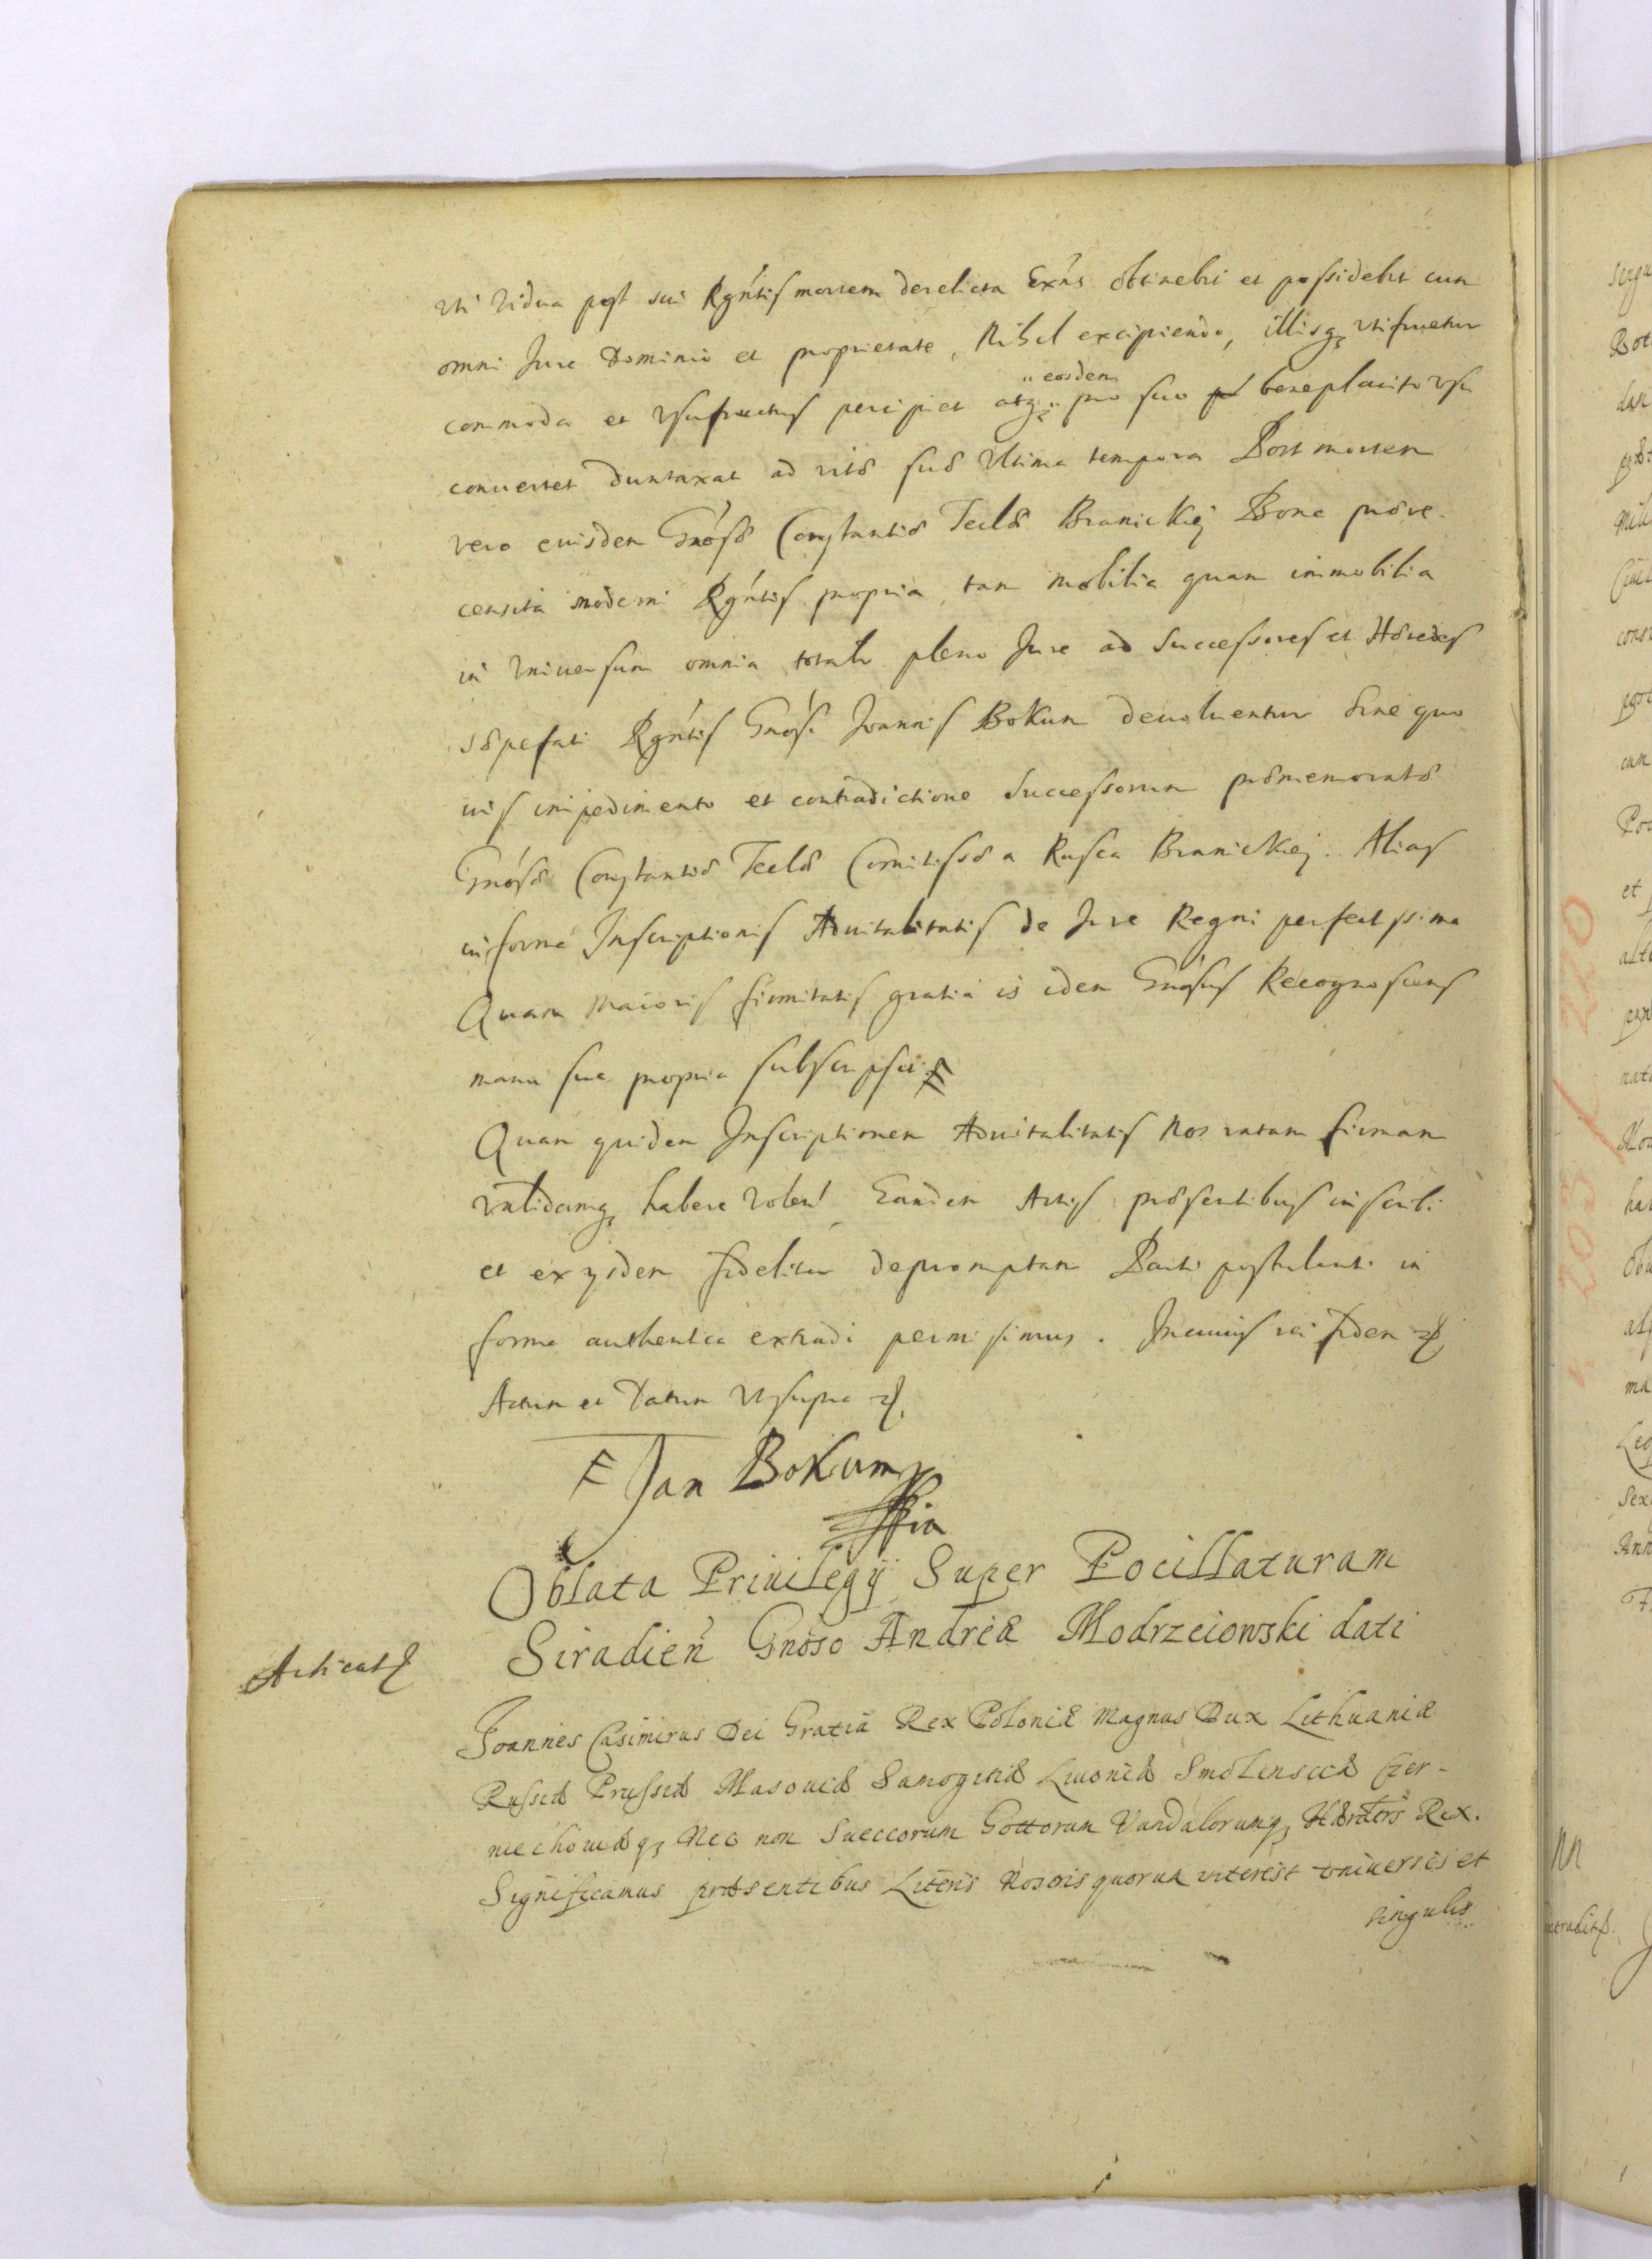 uti Vidua post sui Rgńtis mortem derelicta Exńs obtinebit et possidebit cum
omni Jure Dominio et proprietate, Nihil excipiendo, illisq utifruetur
commoda et Usufructus percipiet atq eosdem pro suo beneplacito usu
convertet duntaxat ad vitæ suæ Ultima tempora Post mortem
vero eiusdem Gnósæ Constantiæ Teclæ Branickiej Bona prære-
censita moderni Rgńtis propria tam mobilia quam immobilia
in Universum omnia totali pleno Jure ad Successores et Hæredes
sæpefati Rgńtis Gnósi Joannis Bokum devoluentur sine quo
vis impedimento et contradictione Successorum præmemoratæ
Gnósæ Constantiæ Teclæ Comitissæ a Rusca Branickiej. Alias
in forma Inscriptionis Aduitalitatis de Jure Regni perfectissima
Quam Maioris firmitatis gratia is idem Gnósus Recognoscens
manu sua propria subscripsit
Quam quidem Inscriptionem Aduitalitatis Nos ratam firmam
validamq habere volens Eandem Actis præsentibus inscribi
et ex ysdem fideliter depromptam Parti postulanti in
forma authentica extradi permisimus. In cuius rei fidem
Actum et Datum Ut supra
Jan Bokum
mpia
Oblata Priuilegÿ Super Pocillaturam
Siradień Gnoso Andreæ Modrzeiowski dati
Joannes Casimirus Dei Gratia Rex Poloniæ Magnus Dux Lithuaniæ
Russiæ Prussiæ Masouiæ Samogitiæ Liuoniæ Smolensciæ Czer-
niechouiæq Nec non Sueccorum Gottorum Vandalorumq Hærdtrs Rex.
Significamus præsentibus Literis Nostris quorum interest Uniuersis et
singulis